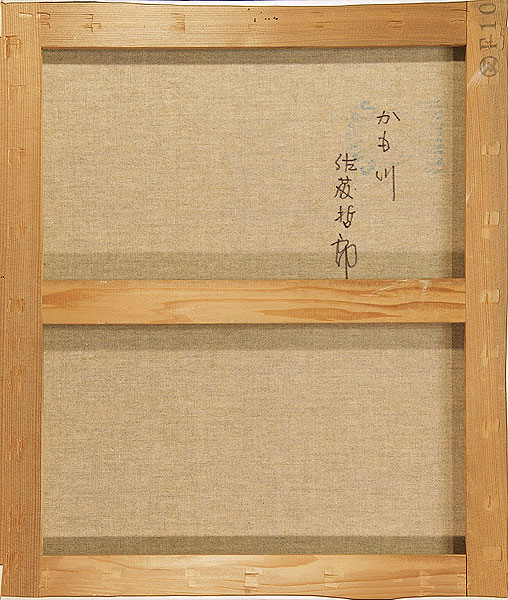 かも川
佐藤哲郎
F10